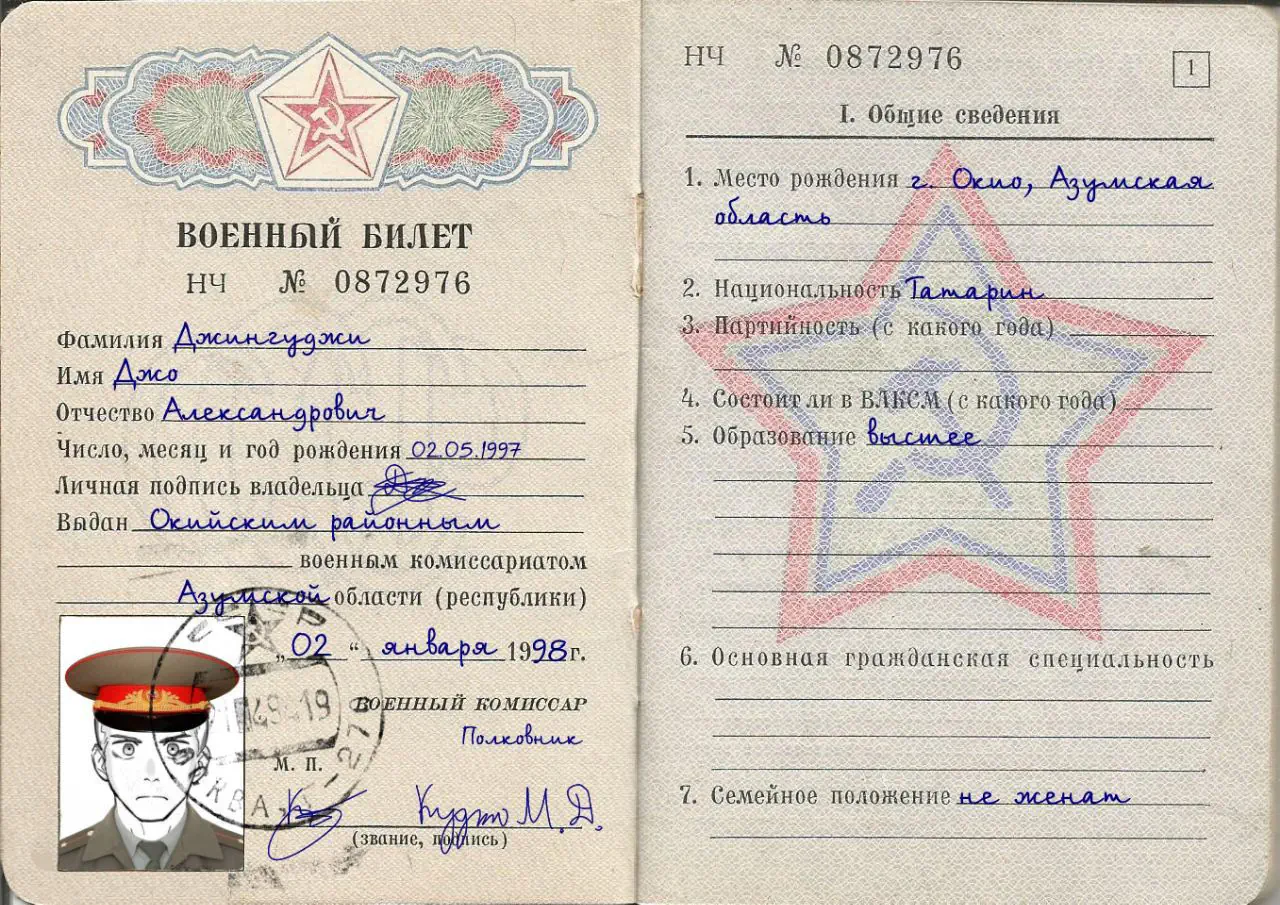 ВОЕННЫЙ БИЛЕТ
НЧ № 0872976
Фамилия Джингуджи
Имя Джо
Отчество Александрович
Число, месяц и год рождения 02.05.1997
Личная подпись владельца
Выдан Окийским районным
военным комиссариатом
Азумской области (республики)
„02“ января 1998 г.
ВОЕННЫЙ КОМИССАР
Полковник
М. П.
Кудзо М. Д.
(звание, подпись)
НЧ № 0872976
1
I. Общие сведения
1. Место рождения г. Окио, Азумская
область
2. Национальность Татарин
3. Партийность (с какого года)
4. Состоит ли в ВЛКСМ (с какого года)
5. Образование высшее
6. Основная гражданская специальность
7. Семейное положение не женат